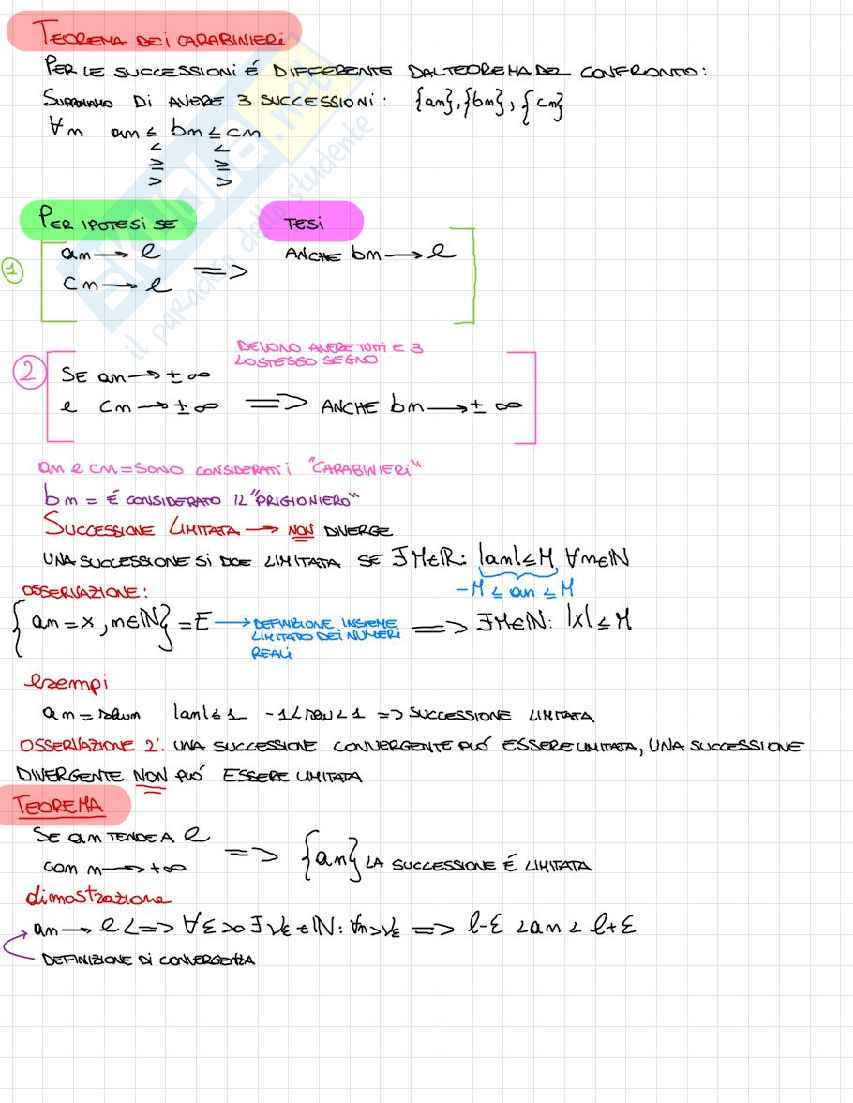 TEOREMA DEI CARABINIERI
PER LE SUCCESSIONI É DIFFERENTE DAL TEOREMA DEL CONFRONTO:
DI AVERE 3 SUCCESSIONI: {an}, {bn}, {cn}
∀n an ≤ bn ≤ cn
< <
≥ ≥
> >
PER IPOTESI SE TESI
① an → l ANCHE bn → l
cn → l =>
DEVONO AVERE TUTTI E 3
LO STESSO SEGNO
② SE an → ±∞
e cn → ±∞ => ANCHE bn → ±∞
an e cn = SONO CONSIDERATI i "CARABINIERI"
bn = É CONSIDERATO IL "PRIGIONIERO"
SUCCESSIONE LIMITATA → NON DIVERGE
UNA SUCCESSIONE SI DCE LIMITATA SE ∃M∈R: |an| ≤ M, ∀n∈N
-M ≤ an ≤ M
OSSERVAZIONE:
{an = x, n∈N} = E → DEFINIZIONE INSIEME => ∃M∈N: |x| ≤ M
LIMITATO DEI NUMERI
REALI
esempi
an = |an| ≤ 1 -1< <1 => SUCCESSIONE LIMITATA
OSSERVAZIONE 2: UNA SUCCESSIONE CONVERGENTE PUÓ ESSERE LIMITATA, UNA SUCCESSIONE
DIVERGENTE NON PUÓ ESSERE LIMITATA
TEOREMA
SE an TENDE A l
con n → +∞ => {an} LA SUCCESSIONE É LIMITATA
dimostrazione
an → l <=> ∀ε>0 ∃νε∈N: ∀n>νε => l-ε < an < l+ε
DEFINIZIONE DI CONVERGENZA
skuola.net
il paradiso dello studente